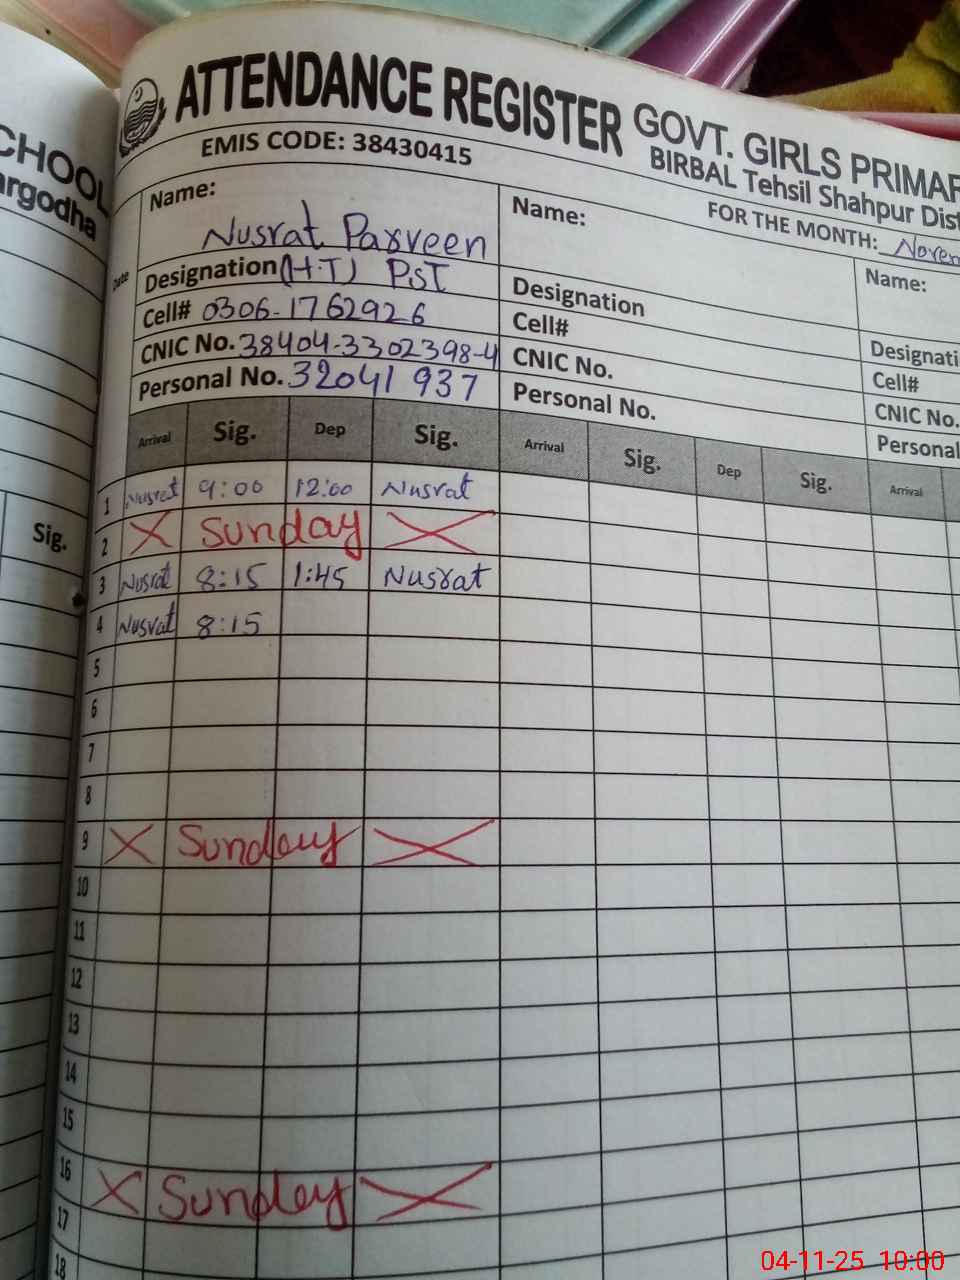 CHOOL
argodha
Sig.
ATTENDANCE REGISTER GOVT. GIRLS PRIMAR
EMIS CODE: 38430415
BIRBAL Tehsil Shahpur Dist
FOR THE MONTH: Novem
Date
Name:
Nusrat Parveen
Designation (H.T) PST
Cell# 0306-1762926
CNIC No. 38404-3302398-4
Personal No. 32041937
Name:
Designation
Cell#
CNIC No.
Personal No.
Name:
Designati
Cell#
CNIC No.
Personal
Arrival Sig. Dep Sig. Arrival Sig. Dep Sig. Arrival
1 Nusrat 9:00 12:00 Nusrat
2 X Sunday X
3 Nusrat 8:15 1:45 Nusrat
4 Nusrat 8:15
5
6
7
8
9 X Sunday X
10
11
12
13
14
15
16 X Sunday X
17
18
04-11-25 10:00